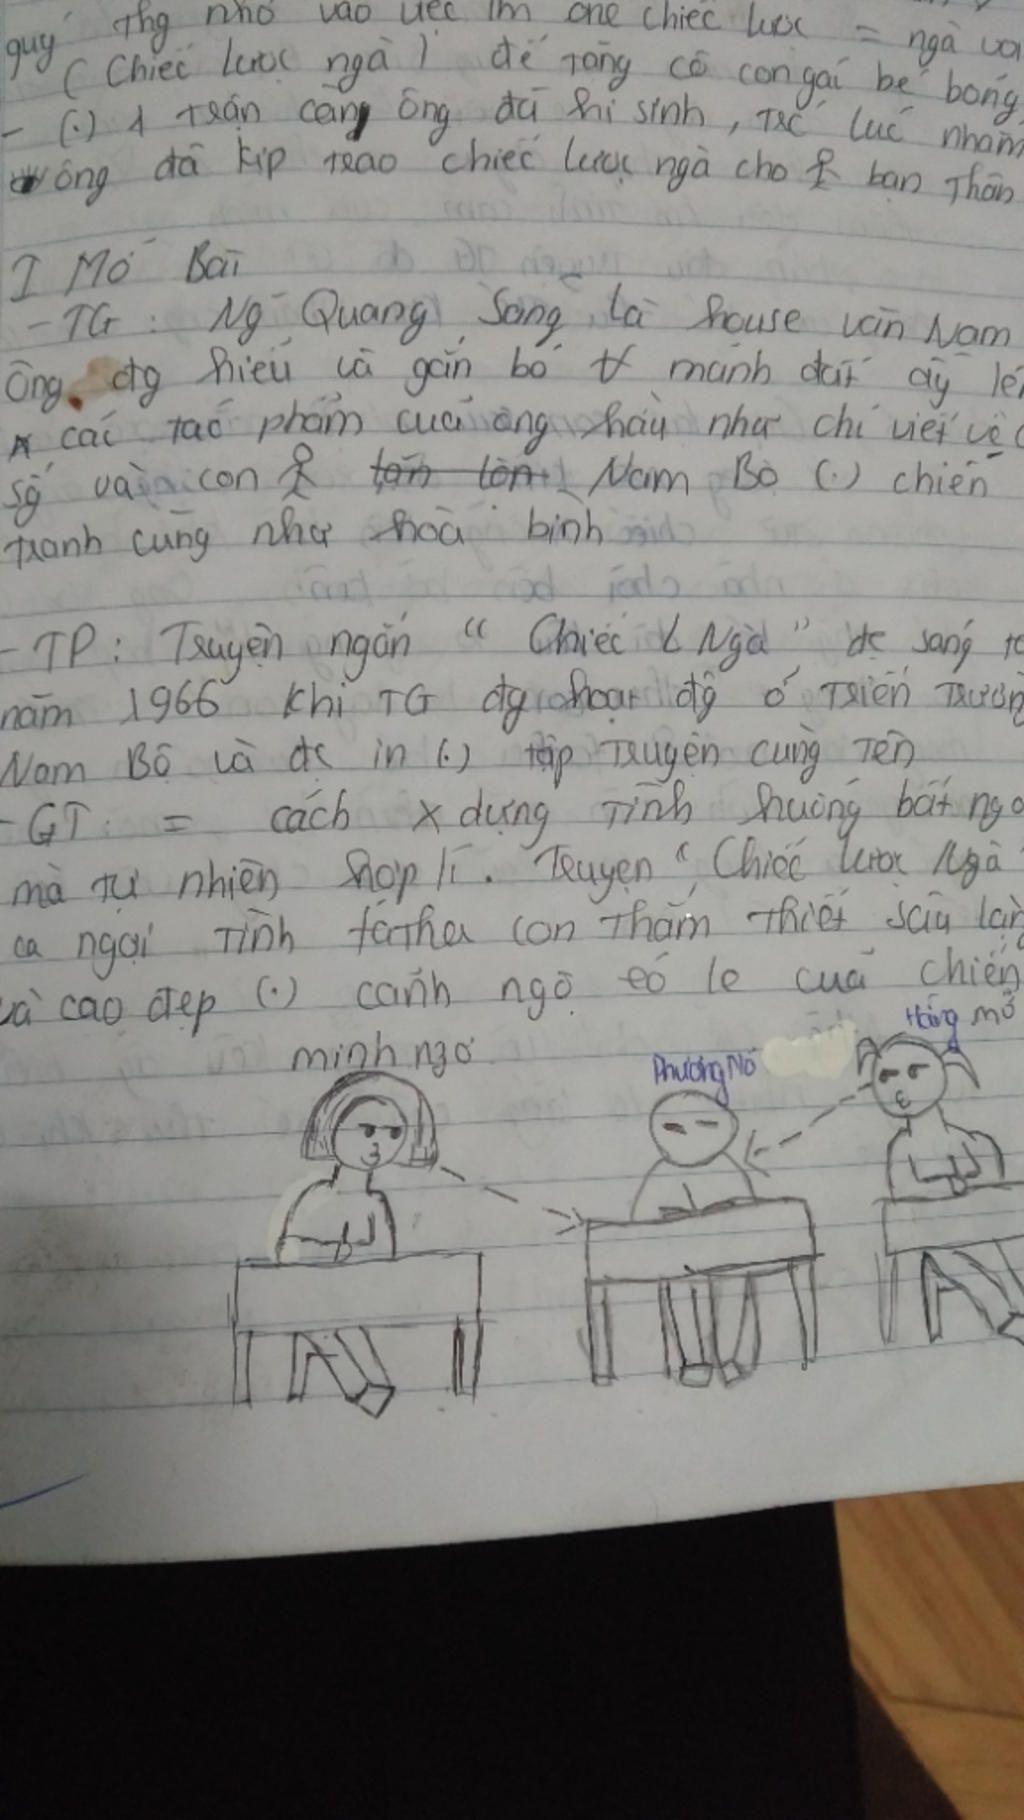 quý thg nhớ vào việc lm one chiếc lược = ngà voi
( Chiếc lược ngà ) để tặng cô con gái bé bỏng
- (.) 1 trận càng ông đã hi sinh, trc lúc nhắm
ông đã kịp trao chiếc lược ngà cho bạn thân
I Mở Bài
- TG : Ng Quang Sáng là house văn Nam
Ông đg hiểu và gắn bó mảnh đất ấy lên
các tác phẩm của ông hầu như chỉ viết về
sg và con tân tòn Nam Bộ (.) chiến
tranh cũng như hoà bình
- TP : Truyện ngắn " Chiếc L Ngà " đc sáng
năm 1966 khi TG đg hoạt độ ở triến trường
Nam Bộ và đc in (.) tập truyện cùng tên
- GT : = cách x dựng tình huống bất ngờ
mà tự nhiên hợp lí. Truyện " Chiếc lược Ngà "
ca ngợi tình father con thắm thiết sâu lặn
và cao đẹp (.) cảnh ngộ éo le của chiến
minh ngơ
Phương Nô
Hồng mơ